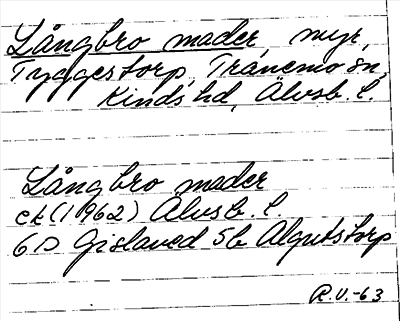 Långbro mader, myr,
Tyggestorp, Tranemo sn,
Kinds hd, Älvsb. l.
Långbro mader
ek (1962) Älvsb. l.
6D Gislaved 5b Algutstorp
R.V.-63